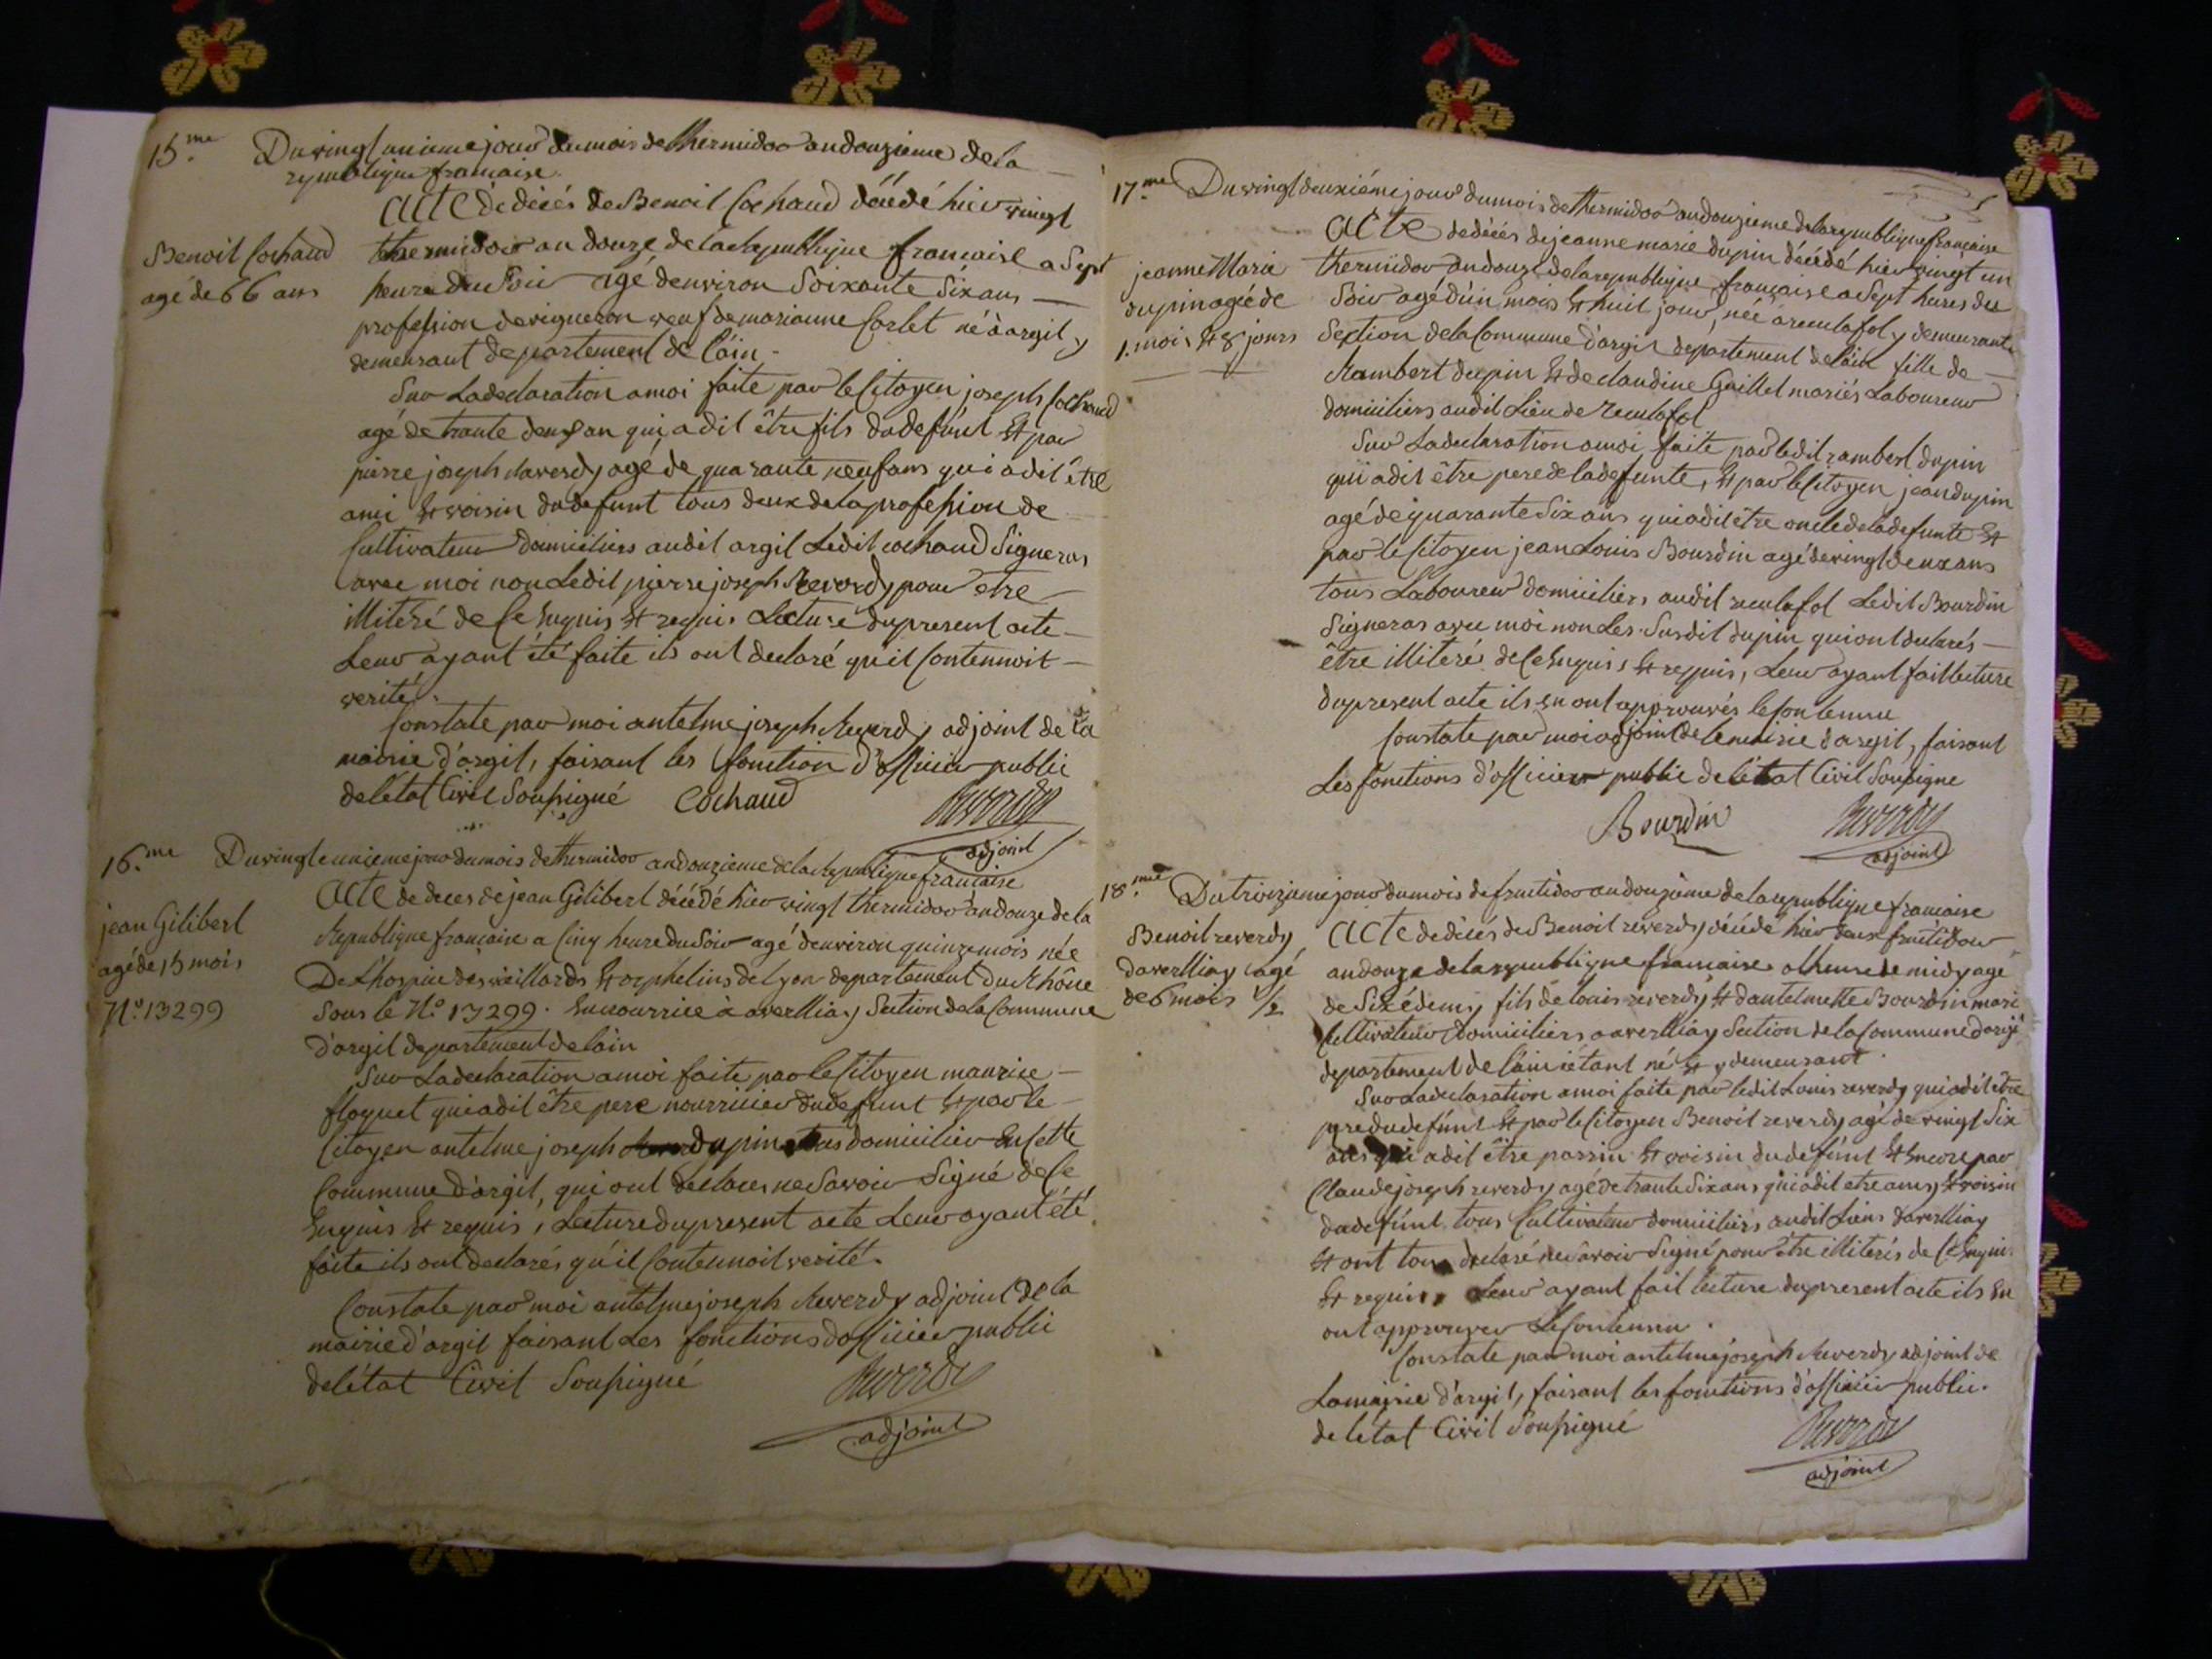 15.me Du vingt unieme jour du mois de thermidor an douzieme de la
republique francaise.
Acte de décés de Benoit Cochaud décédé hier vingt
Benoit Cochaud
agé de 66 ans
thermidor an douze de la republique francaise a Sept
heure du Soir agé d'environ Soixante Six ans
profession de vigneron veuf de marianne Corlet né à argil y
demeurant departement de l'ain.
Sur La declaration a moi faite par le Citoyen joseph Cochaud
agé de trante deux an qui a dit être fils du defunt et par
pierre joseph reverdy agé de quarante neuf ans qui a dit être
ami et voisin du defunt tous deux de la profession de
Cultivateur domiciliers audit argil Ledit cochaud Signeras
avec moi non Ledit pierre joseph Reverdy pour etre
illiteré de Ce Enquis et requis Lecture du present acte
Leur ayant été faite ils ont declaré qu'il Contennoit
verité.
Constate par moi antelme joseph Reverdy adjoint de la
mairie d'argil, faisant les fonction d'officier public
de l'état Civil Soussigné Cochaud Reverdy
adjoint
16.me Du vingt e unieme jour du mois de thermidor an douzieme de la Republique francaise
Acte de deces de jean Gilibert décédé hier vingt thermidor an douze de la
jean Gilibert
agé de 15 mois
N.o 13299
Republique francaise a Cinq heure du Soir agé d'environ quinze mois née
De L'hospice des vieillards et orphelins de Lyon departement du Rhône
Sous le N.o 13299. En nourrice à averlliay Section de la Commune
d'argil departement de lain
Sur La declaration a moi faite par le Citoyen maurice
floquet qui a dit être pere nourricier du defunt et par le
Citoyen antelme joseph dupin tous domicilier en Cette
Commune d'argil, qui ont declares ne Savoir Signé de Ce
Enquis et requis, Lecture du present acte Leur ayant été
faite ils ont declarés qu'il Contennoit verité.
Constate par moi antelme joseph Reverdy adjoint de la
mairie d'argil faisant Les fonctions d'officier public
de l'état Civil Soussigné Reverdy
adjoint
17.me Du vingt deuxiéme jour du mois de thermidor an douzieme de la republique francaise
Acte de décés de jeanne marie dupin décédé hier vingt un
jeanne Marie
dupin agée de
1. mois et 8 jours
thermidor an douze de la republique francaise a Sept heures du
Soir agé d'un mois et huit jour, née a reculafol y demeurante
Section de la Commune d'argil departement de l'ain fille de
Rambert dupin et de claudine Guillet mariés Laboureur
domiciliers audit Lieu de reculafol
Sur La declaration a moi faite par ledit rambert dupin
qui a dit être pere de la defunte, et par le Citoyen jean dupin
agé de quarante Six ans qui a dit être oncle de la defunte et
par le Citoyen jean Louis Bourdin agé de vingt deux ans
tous Laboureur domiciliers audit reculafol Ledit Bourdin
Signeras avec moi non Les Susdit dupin qui ont declarés
être illiteré de Ce Enquis et requis, Leur ayant fait lecture
du present acte ils en ont approuvés le Contennu
Constate par moi adjoint de le mairie d'argil, faisant
Les fonctions d'officier public de l'état Civil Soussigne
Bourdin Reverdy
adjoint
18.me Du troizieme jour du mois de fructidor an douzieme de la republique francaise
Benoit reverdy
d'averlliay agé
de 6 mois 1/2
Acte de décés de Benoit reverdy décédé hier deux fructidor
an douze de la republique francaise a lheure de midy agé
de Six é demy fils de louis reverdy et d'antelmette Bourdin marié
Cultivateur domiciliers a averlliay Section de la Commune d'argil
departement de l'ain étant né et y demeurant.
Sur La declaration a moi faite par ledit Louis reverdy qui a dit être
pere du defunt et par le Citoyen Benoit reverdy agé de vingt Six
ans qui a dit être parrin et voisin du defunt et Encore par
Claude joseph reverdy agé de trante Six ans qui a dit etre amy et voisin
du defunt tous Cultivateur domiciliers audit Liens d'averlliay
et ont tous declaré ne Savoir Signé pour être illiterés de Ce Enquis
et requis, Leur ayant fait lecture du present acte ils en
ont approuver Le Contennu.
Constate par moi antelme joseph Reverdy adjoint de
La mairie d'argil, faisant les fonctions d'officier public.
de l'état Civil Soussigné
Reverdy
adjoint